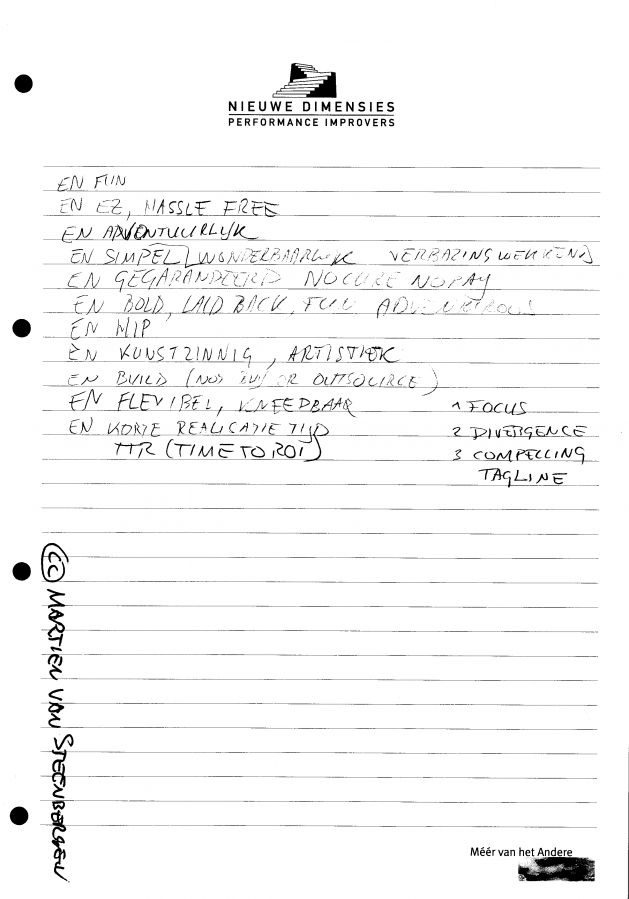 NIEUWE DIMENSIES
PERFORMANCE IMPROVERS
EN FUN
EN EZ, HASSLE FREE
EN ADVENTUURLIJK
EN SIMPEL, WONDERBAARLIJK VERBAZINGWEKKEND
EN GEGARANDEERD NO CURE NO PAY
EN BOLD, LAID BACK, FUN ADVENTROUS
EN HIP
EN KUNSTZINNIG, ARTISTIEK
EN BUILD (NOT BUY OR OUTSOURCE)
EN FLEXIBEL, KNEEDBAAR
EN KORTE REALISATIE TIJD
TTR (TIME TO ROI)
1 FOCUS
2 DIVERGENCE
3 COMPELLING
TAGLINE
(CC) MARTIEN VAN STEENBERGEN
Méér van het Andere